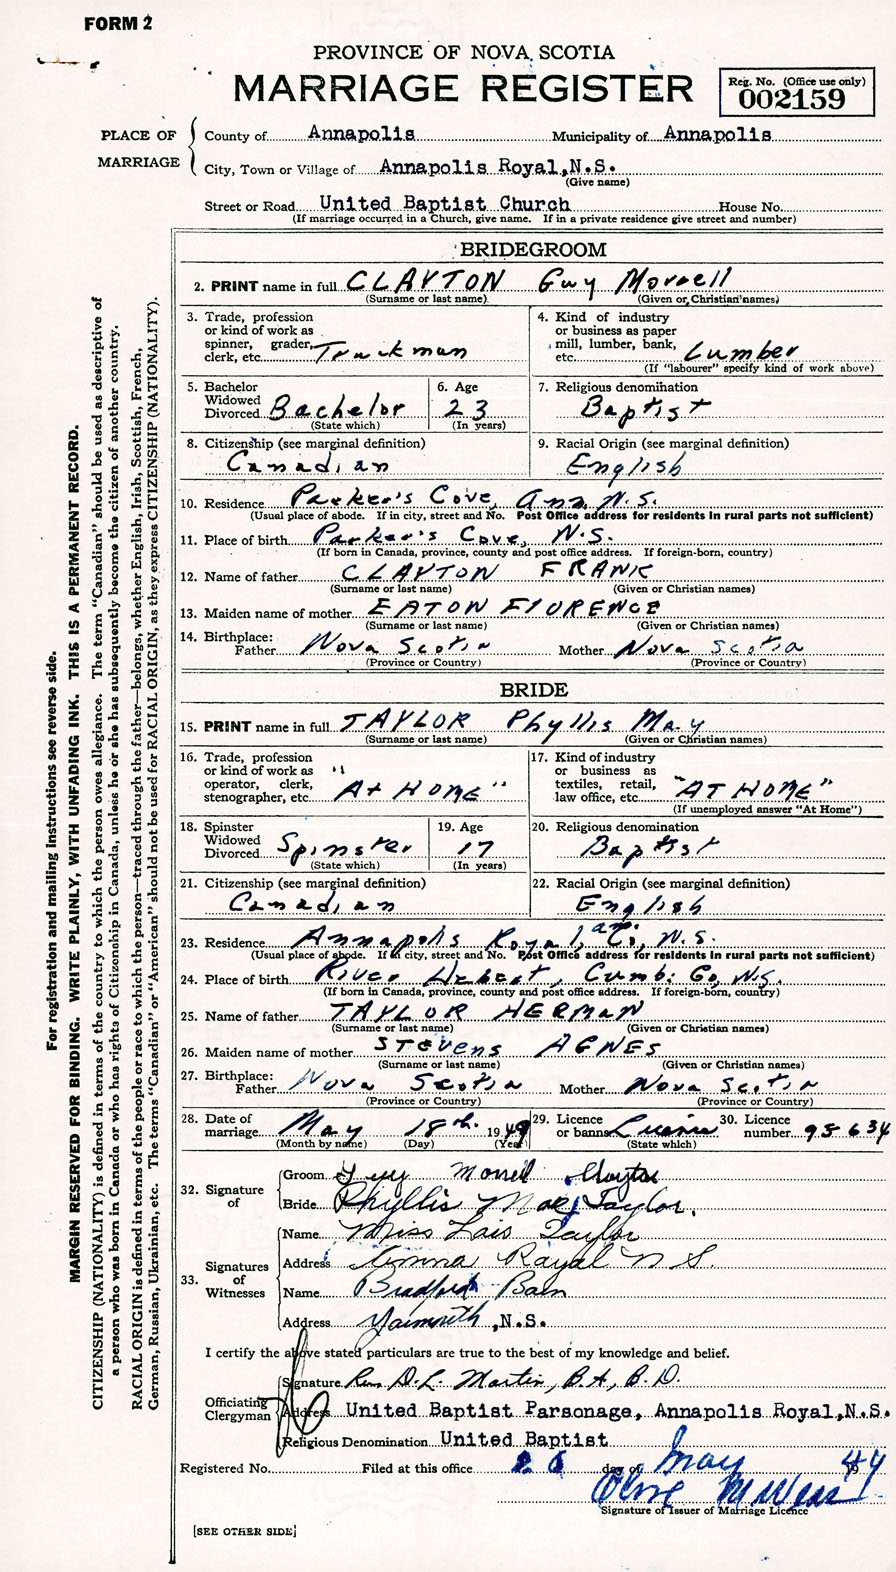 FORM 2
PROVINCE OF NOVA SCOTIA
MARRIAGE REGISTER
Reg. No. (Office use only)
002159
PLACE OF MARRIAGE
County of Annapolis Municipality of Annapolis
City, Town or Village of Annapolis Royal, N.S.
(Give name)
Street or Road United Baptist Church House No.
(If marriage occurred in a Church, give name. If in a private residence give street and number)
For registration and mailing instructions see reverse side.
MARGIN RESERVED FOR BINDING. WRITE PLAINLY, WITH UNFADING INK. THIS IS A PERMANENT RECORD.
CITIZENSHIP (NATIONALITY) is defined in terms of the country to which the person owes allegiance. The term "Canadian" should be used as descriptive of
a person who was born in Canada or who has rights of Citizenship in Canada, unless he or she has subsequently become the citizen of another country.
RACIAL ORIGIN is defined in terms of the people or race to which the person—traced through the father—belongs, whether English, Irish, Scottish, French,
German, Russian, Ukrainian, etc. The terms "Canadian" or "American" should not be used for RACIAL ORIGIN, as they express CITIZENSHIP (NATIONALITY).
BRIDEGROOM
2. PRINT name in full CLAYTON Guy Morrell
(Surname or last name) (Given or Christian names)
3. Trade, profession
or kind of work as
spinner, grader,
clerk, etc. Truckman
4. Kind of industry
or business as paper
mill, lumber, bank,
etc. Lumber
(If "labourer" specify kind of work above)
5. Bachelor
Widowed
Divorced Bachelor
(State which)
6. Age
23
(In years)
7. Religious denomination
Baptist
8. Citizenship (see marginal definition)
Canadian
9. Racial Origin (see marginal definition)
English
10. Residence Parker's Cove, Ann. N.S.
(Usual place of abode. If in city, street and No. Post Office address for residents in rural parts not sufficient)
11. Place of birth Parker's Cove, N.S.
(If born in Canada, province, county and post office address. If foreign-born, country)
12. Name of father CLAYTON FRANK
(Surname or last name) (Given or Christian names)
13. Maiden name of mother EATON FlORENCE
(Surname or last name) (Given or Christian names)
14. Birthplace:
Father Nova Scotia Mother Nova Scotia
(Province or Country) (Province or Country)
BRIDE
15. PRINT name in full TAYLOR Phyllis May
(Surname or last name) (Given or Christian names)
16. Trade, profession
or kind of work as
operator, clerk,
stenographer, etc. "At HOME"
17. Kind of industry
or business as
textiles, retail,
law office, etc. "AT HOME"
(If unemployed answer "At Home")
18. Spinster
Widowed
Divorced Spinster
(State which)
19. Age
17
(In years)
20. Religious denomination
Baptist
21. Citizenship (see marginal definition)
Canadian
22. Racial Origin (see marginal definition)
English
23. Residence Annapolis Royal, Ann. Co, N.S.
(Usual place of abode. If in city, street and No. Post Office address for residents in rural parts not sufficient)
24. Place of birth River Hebert, Cumb. Co, N.S.
(If born in Canada, province, county and post office address. If foreign-born, country)
25. Name of father TAYLOR HERMAN
(Surname or last name) (Given or Christian names)
26. Maiden name of mother STEVENS AGNES
(Surname or last name) (Given or Christian names)
27. Birthplace:
Father Nova Scotia Mother Nova Scotia
(Province or Country) (Province or Country)
28. Date of
marriage May 18th. 1949
(Month by name) (Day) (Year)
29. Licence
or banns Licence
(State which)
30. Licence
number 95634
32. Signature of
Groom Guy Morrell Clayton
Bride Phyllis Mae Taylor.
33. Signatures of Witnesses
Name Miss Lois Taylor
Address Anna Royal N S.
Name Bradford Bain
Address Yarmouth, N.S.
I certify the above stated particulars are true to the best of my knowledge and belief.
Officiating Clergyman
Signature Rev D.L. Martin, B.A, B.D.
Address United Baptist Parsonage, Annapolis Royal, N.S.
Religious Denomination United Baptist
Registered No. Filed at this office 26 day of May 1949
Signature of Issuer of Marriage Licence
[SEE OTHER SIDE]